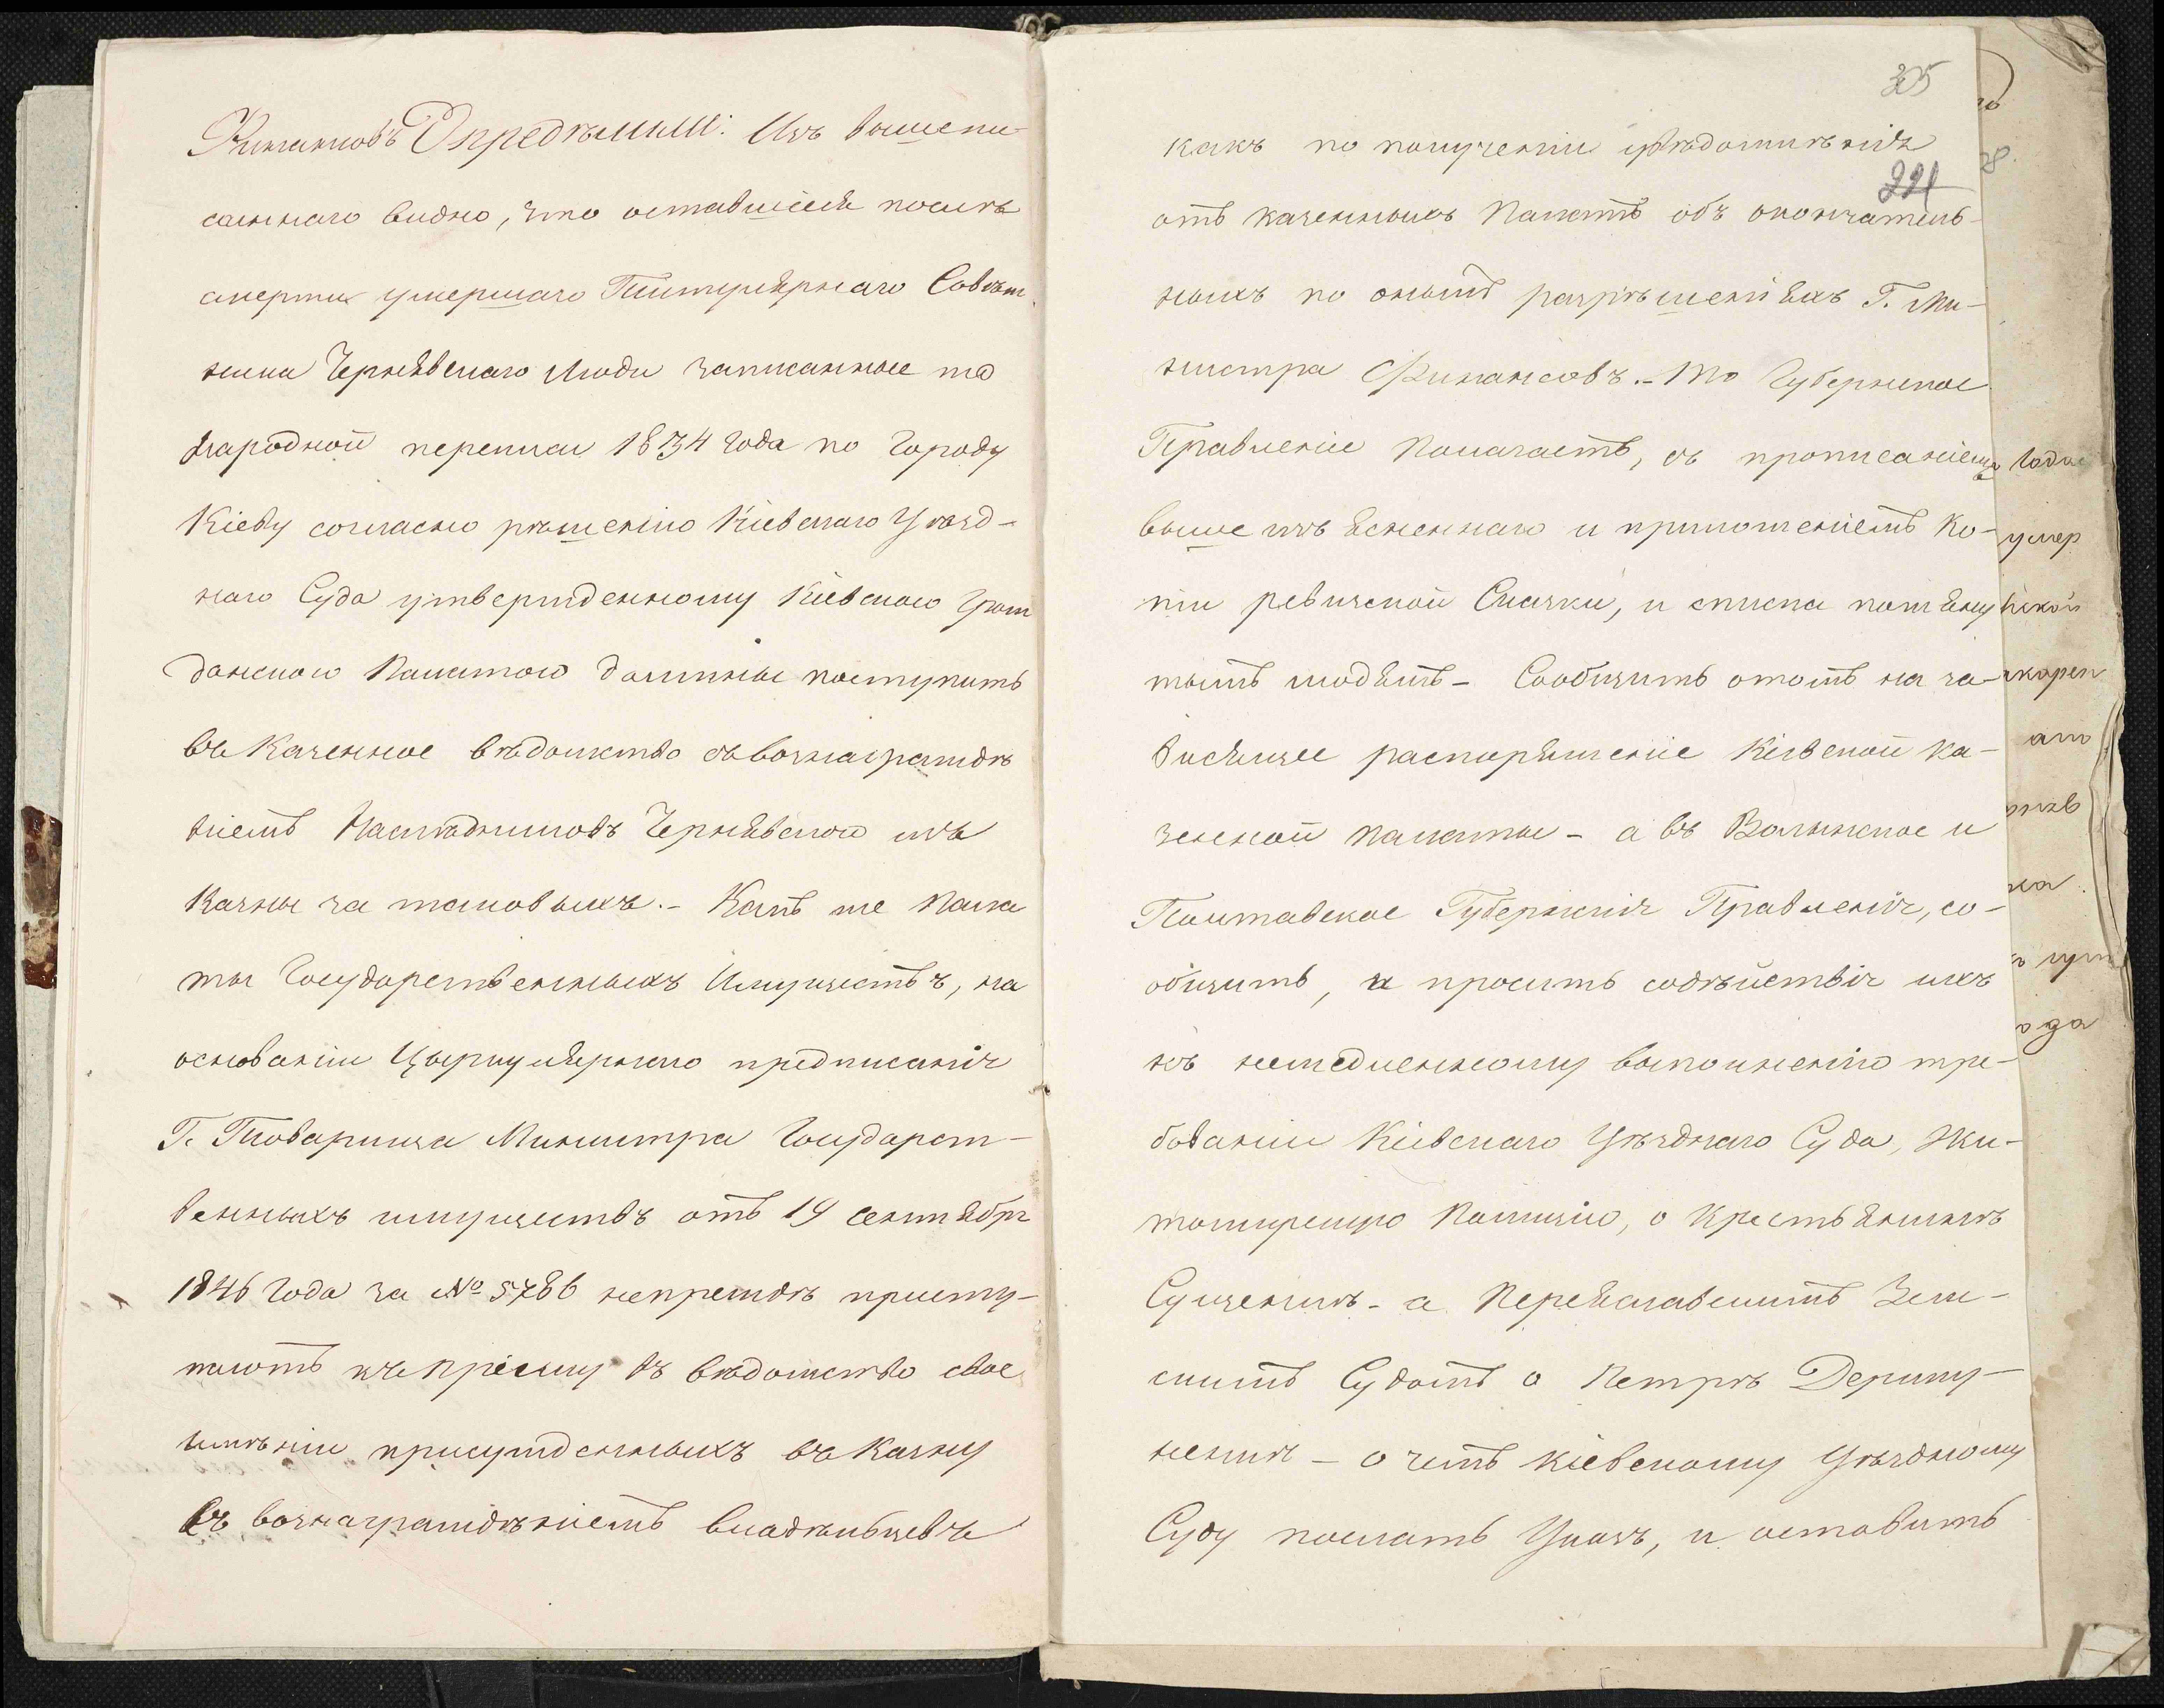 Финансовъ Опредѣлили: Изъ вышепи-
саннаго видно, что оставшіеся послѣ
смерти умершаго Титулярнаго Совѣт-
ника Чернявскаго люди записанные по
народной переписи 1834 года по Городу
Кіеву согласно рѣшенію Кіевскаго Уѣзд-
наго Суда утвержденному Кіевскою Граж
данскою Палатою должны поступить
въ Казенное вѣдомство съ вознагражде
ніемъ Наслѣдниковъ Чернявскаго изъ
Казны за таковыхъ.- Какъ же Пала
ты Государственныхъ Имуществъ, на
основаніи Циркулярнаго предписанія
Г. Товарища Министра Государст-
венныхъ имуществъ отъ 19 сентября
1846 года за № 5786 непрежде присту-
паютъ къ пріему въ вѣдомство свое
имѣніи присужденныхъ въ Казну
съ вознагражденіемъ владѣльцевъ
305
какъ по полученіи увѣдомленія
221
отъ казенныхъ Палатъ объ окончатель-
ныхъ по онымъ разрѣшеніяхъ Г. Ми-
нистра Финансовъ.- То Губернское
Правленіе Полагаетъ, съ прописаніемъ
выше изъясненнаго и приложеніемъ Ко-
піи ревизской Сказки, и списка помяну
тымъ людямъ- Сообщить отомъ на за-
висящее распоряженіе Кіевской Ка-
зенной палаты - а въ Волынское и
Полтавское Губернскія Правленія, со-
общить, и просить содѣйствія ихъ
къ немедленному выполненію тре-
бованіи Кіевскаго Уѣзднаго Суда, Жи-
томирскую Полицію, о Крестьянинѣ
Сущенкѣ - а Переяславскимъ Зем-
скимъ Судомъ о Петрѣ
- о чемъ Кіевскому Уѣздному
Суду послать Указъ, и оставить